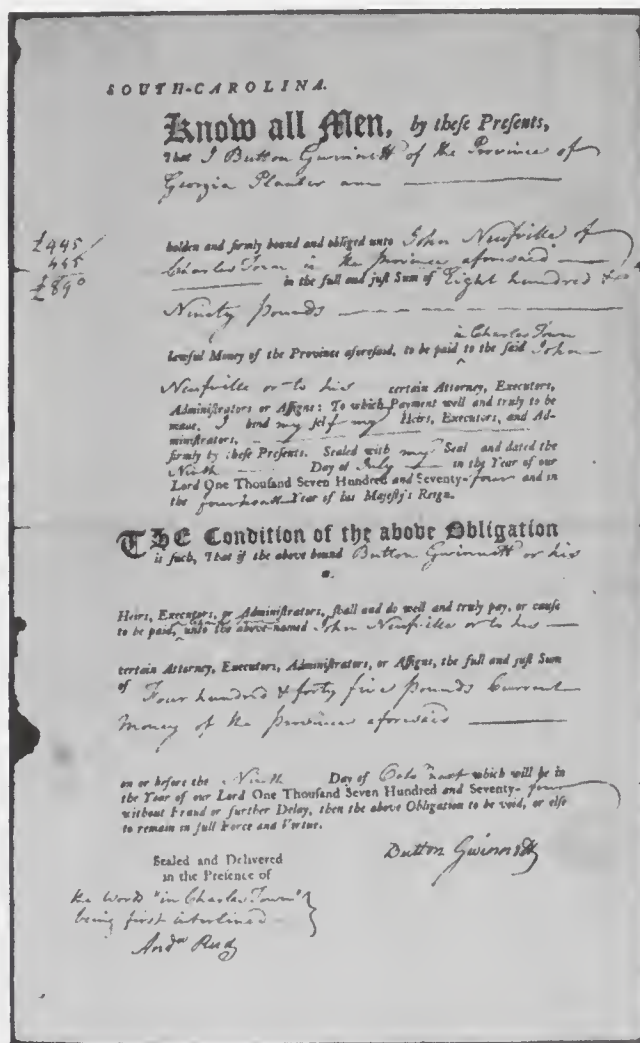 SOUTH-CAROLINA.
Know all Men, by these Presents,
That I Button Gwinnett of the Province of
Georgia Planter am
£445
445
£890
holden and firmly bound and obliged unto John Neufville of
Charles Town in the Province aforesaid
in the full and just Sum of Eight hundred &
Ninety pounds
in Charles Town
lawful Money of the Province aforesaid, to be paid to the said John
Neufville or to his certain Attorney, Executors,
Administrators or Assigns: To which Payment well and truly to be
made, I bind my self my Heirs, Executors, and Ad-
ministrators,
firmly by these Presents. Sealed with my Seal and dated the
Ninth Day of July in the Year of our
Lord One Thousand Seven Hundred and Seventy-four and in
the fourteenth Year of his Majesty's Reign.
THE Condition of the above Obligation
is such, That if the above bound Button Gwinnett or his
Heirs, Executors, or Administrators, shall and do well and truly pay, or cause
to be paid, unto the above-named John Neufville or to his
certain Attorney, Executors, Administrators, or Assigns, the full and just Sum
of Four hundred & forty five pounds Current
Money of the Province aforesaid
on or before the Ninth Day of next which will be in
the Year of our Lord One Thousand Seven Hundred and Seventy-four
without Fraud or further Delay, then the above Obligation to be void, or else
to remain in full Force and Virtue.
Button Gwinnett
Sealed and Delivered
in the Presence of
the Words "in Charles Town"
being first interlined